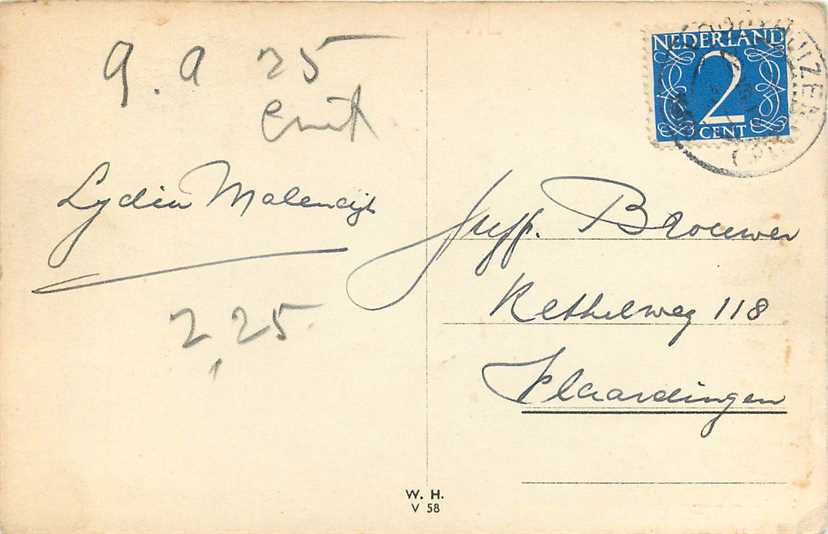 9.9 25
cent
Lydia Molendijk
2,25
NEDERLAND
2
CENT
Juff. Brouwer
Kethelweg 118
Vlaardingen
W. H.
V 58